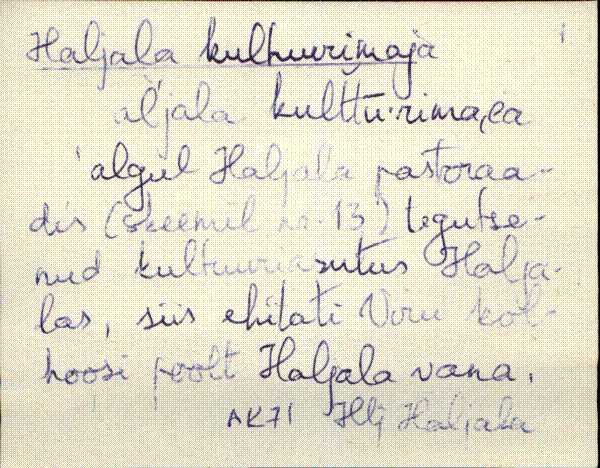 Haljala kultuurimaja
äljala kulttu·rima,ea
algul Haljala pastoraa-
dis (skeemil nr. 13) tegutse-
nud kultuuriasutus Halja-
las, siis ehitati Viru kol-
hoosi poolt Haljala vana.
AK71 Hlj Haljala